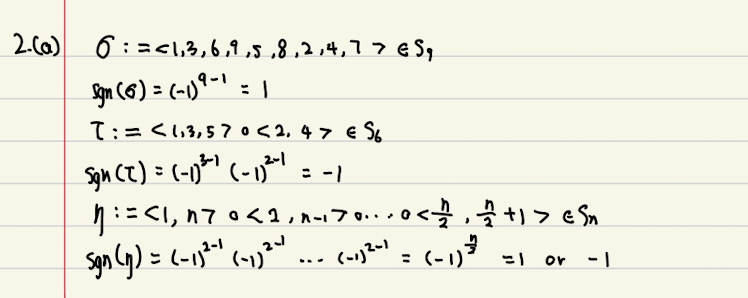 2.(a) σ := <1,3,6,9,5,8,2,4,7> ∈ S₉
sgn(σ) = (-1)⁹⁻¹ = 1
τ := <1,3,5> ∘ <2,4> ∈ S₆
sgn(τ) = (-1)³⁻¹ (-1)²⁻¹ = -1
η := <1, n> ∘ <2, n-1> ∘ ... ∘ <n/2, n/2 + 1> ∈ Sn
sgn(η) = (-1)²⁻¹ (-1)²⁻¹ ... (-1)²⁻¹ = (-1)^(n/2) = 1 or -1